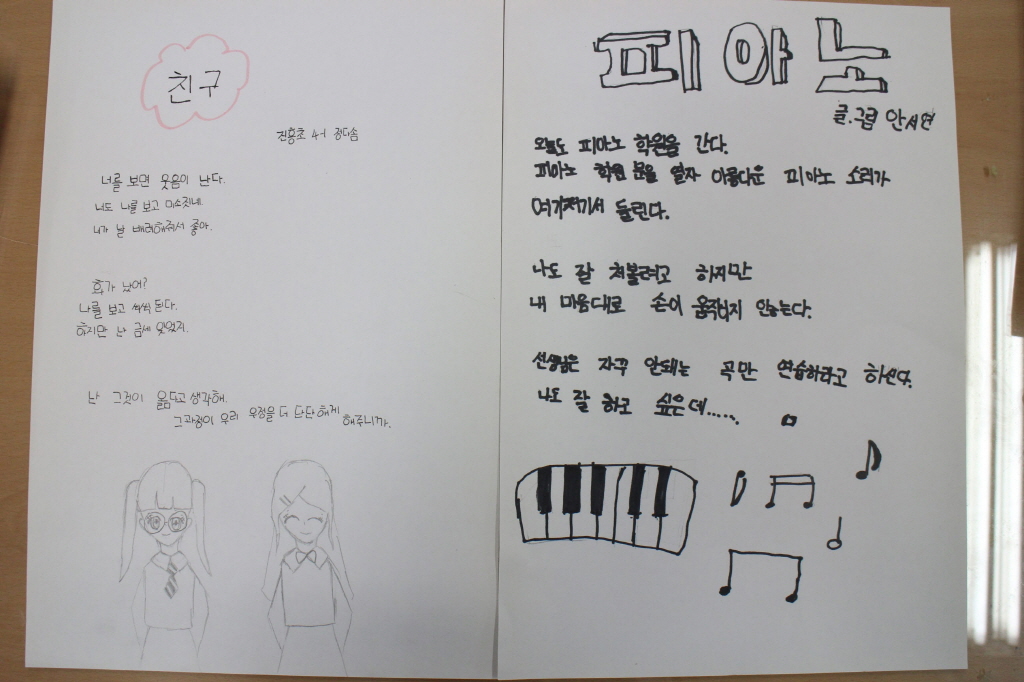 친구
진흥초 4-1 정다솜
너를 보면 웃음이 난다.
너도 나를 보고 미소짓네.
니가 날 배려해줘서 좋아.
화가 났어?
나를 보고 씩씩 된다.
하지만 난 금세 잊었지.
난 그것이 옳다고 생각해.
그 과정이 우리 우정을 더 단단하게
해주니까.
피아노
글.그림 안서연
오늘도 피아노 학원을 간다.
피아노 학원 문을 열자 아름다운 피아노 소리가
여기저기서 들린다.
나도 잘 쳐볼려고 하지만
내 마음대로 손이 움직이지 안는다.
선생님은 자꾸 안돼는 곡만 연습하라고 하신다.
나도 잘 하고 싶은데......